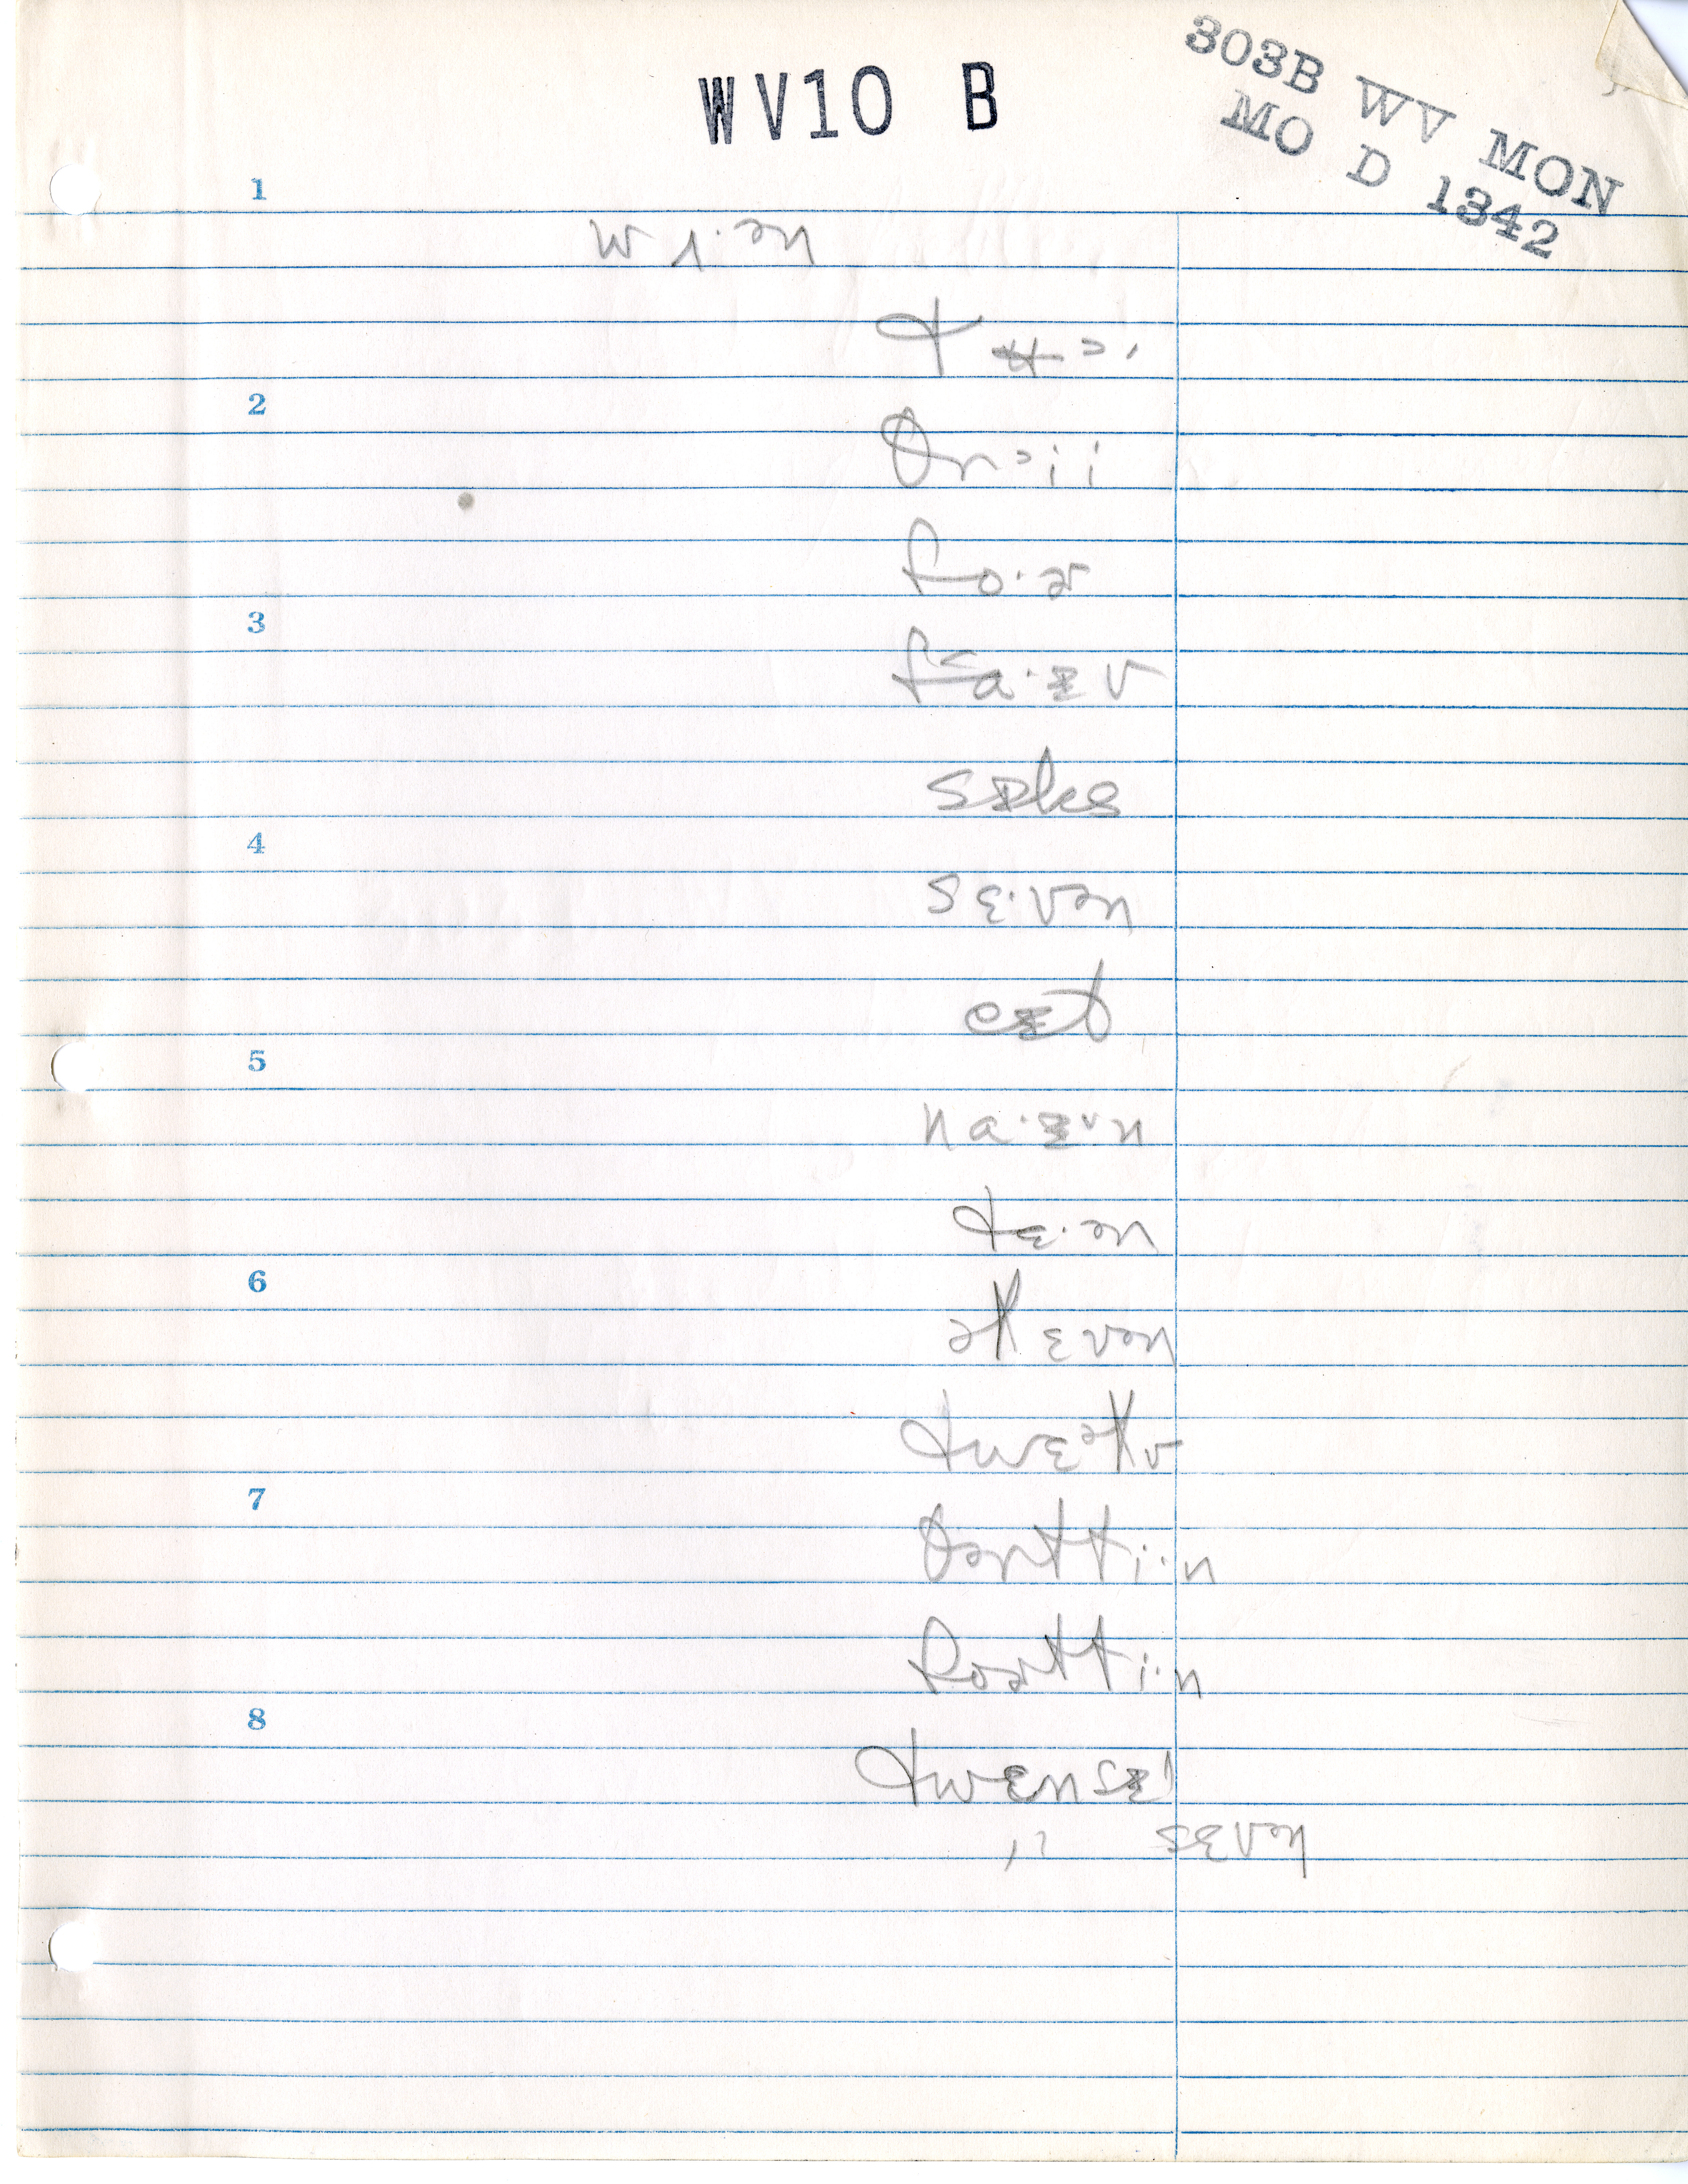 WV10 B
303B WV MON
MO D 1342
1
w ʌ·ən
t ʉ ᵓ·
2
θr ᵓi i
fo·ɚ
3
fa·ɪv
sɪks
4
sɛ·vən
eɪt
5
na·ɪ·n
tɛ·ən
6
əlɛvən
twɛəlv
7
θərtti·n
foɚtti·n
8
twɛnsɪ
" sɛvən